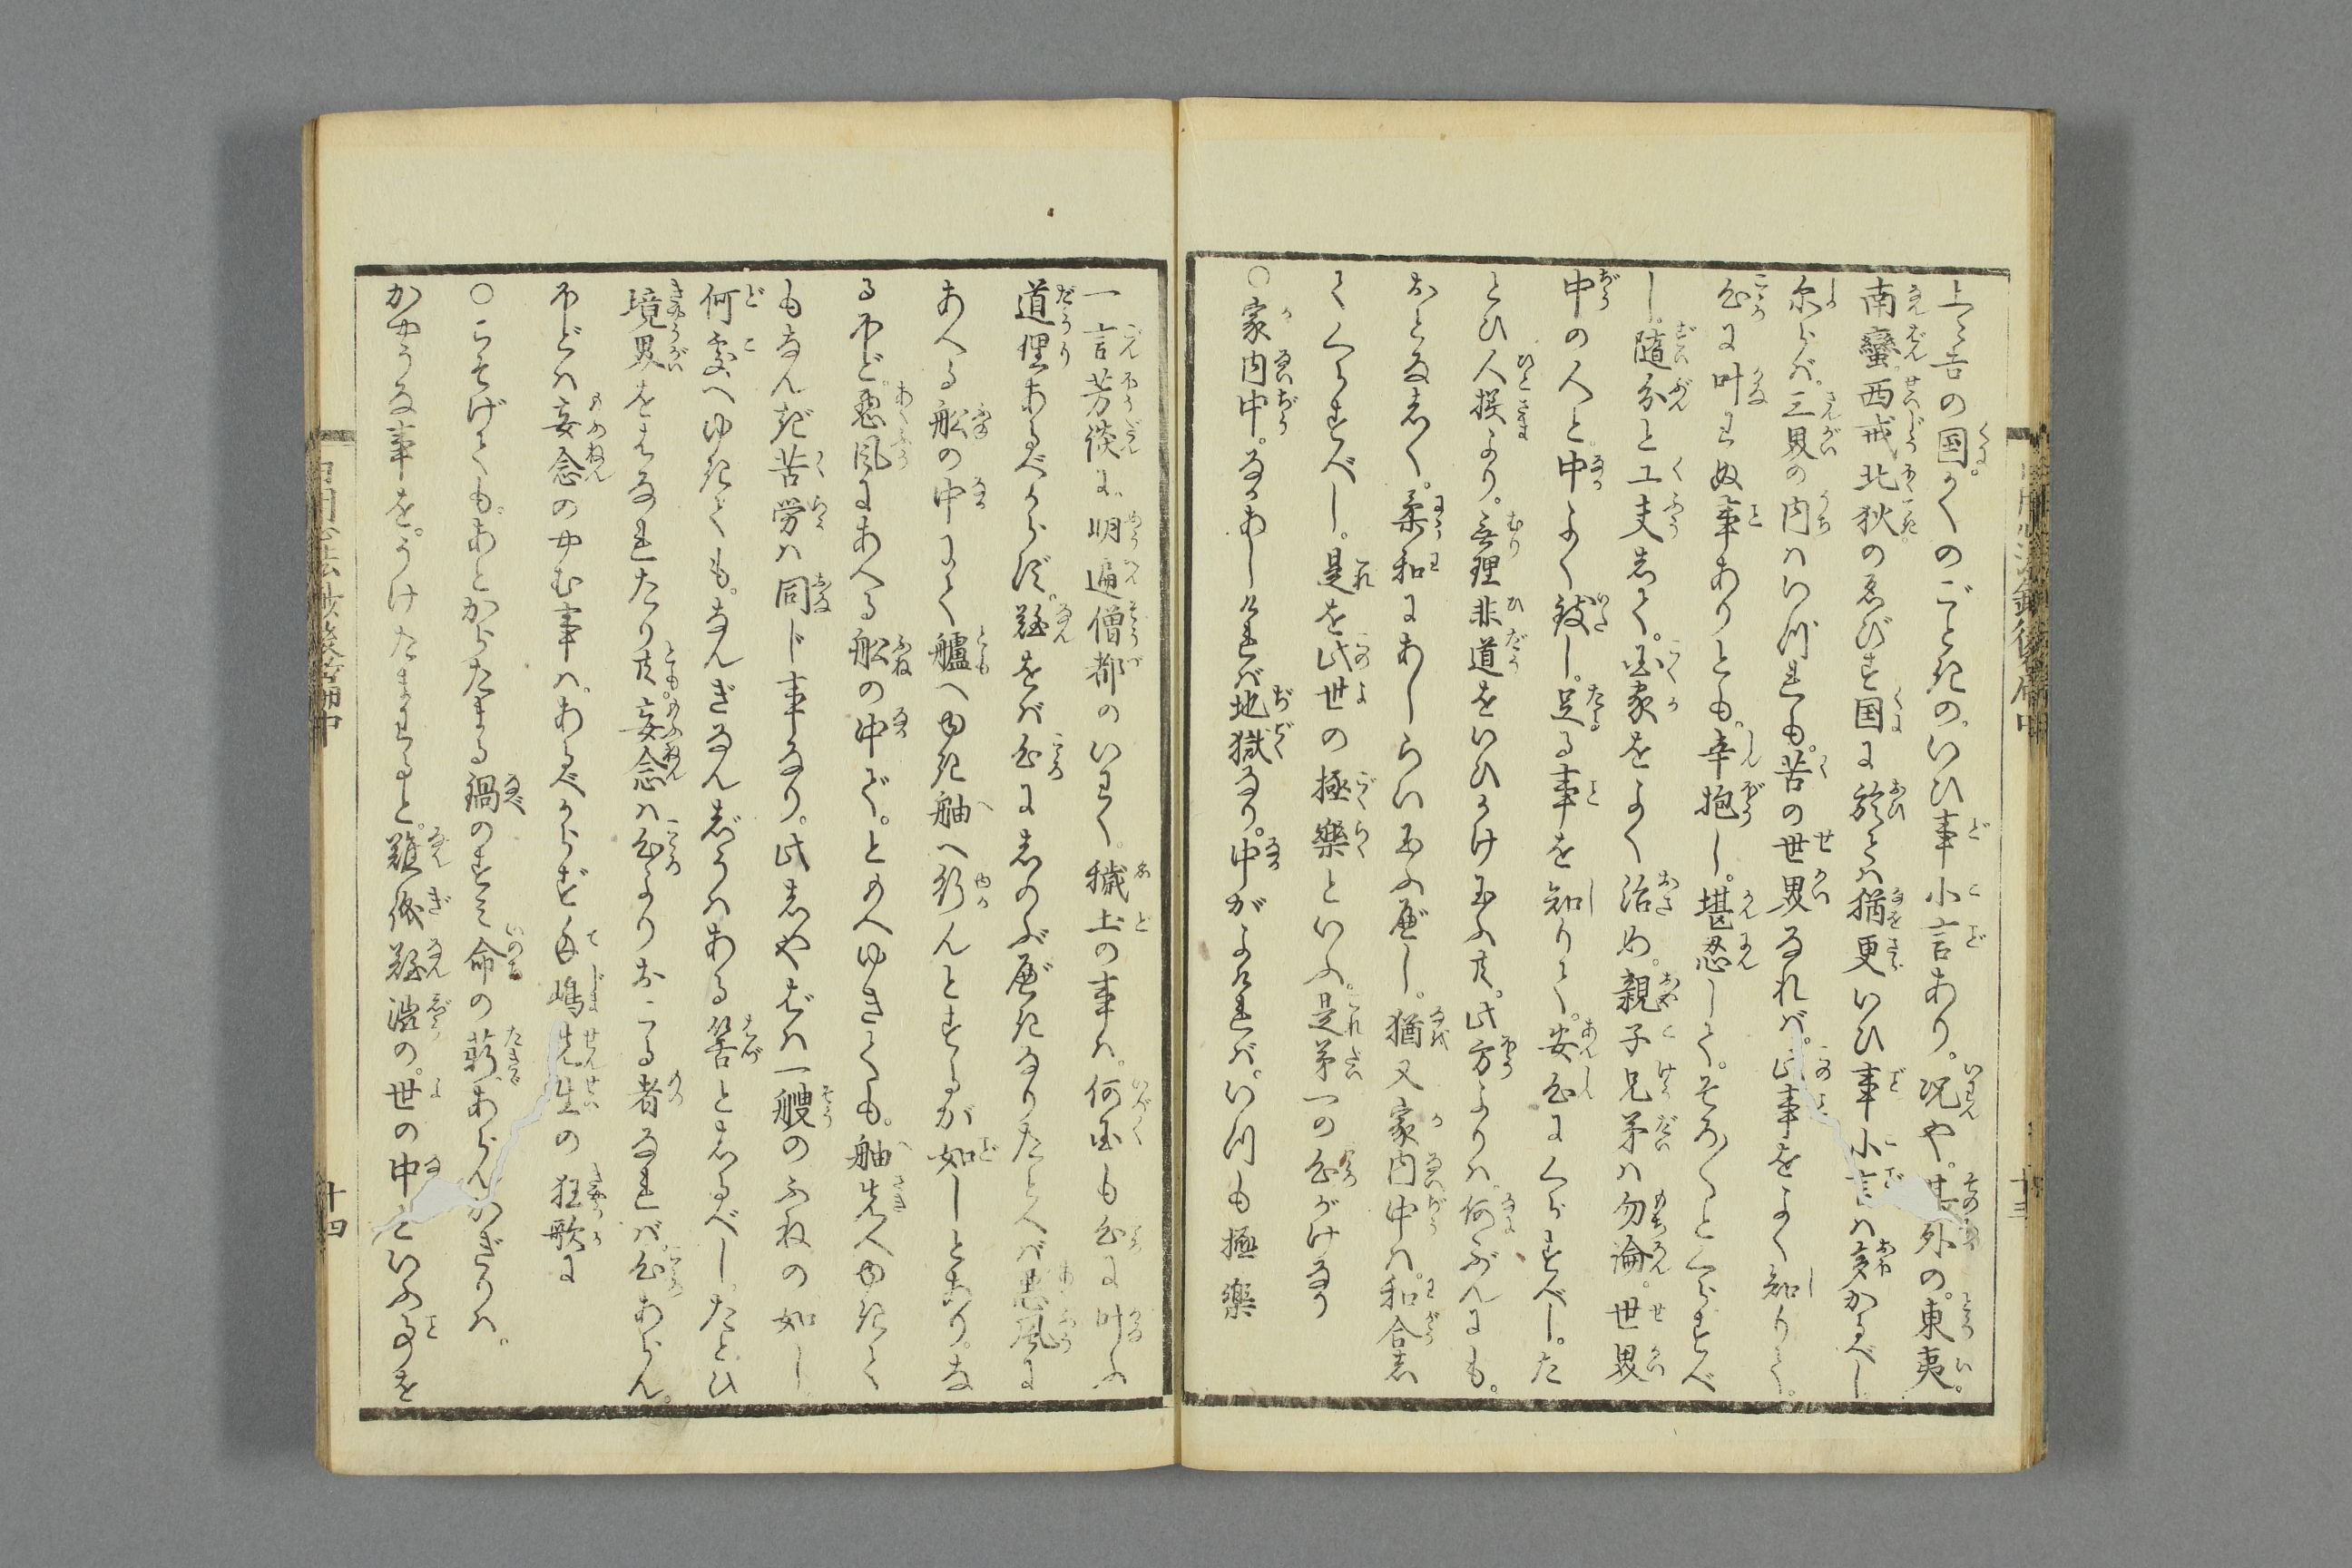 上々吉の国かくのごときの。いひ事小言あり。况や。其外の。東夷。
南蠻。西戎北狄のゑびす国に於ては猶更いひ事小言は多かるべし
尓らば。三界の内はいづれも。苦の世界なれば。此事をよく知りて。
心に叶はぬ事ありとも。辛抱し。堪忍して。そろ〳〵とくらすべ
し。随分と工夫して。国家をよく治め。親子兄弟は勿論。世界
中の人と。中よく致し。足る事を知りて。安心にくらすべし。た
とひ人様より。無理非道をいひかけ玉ふ共。此方よりは。何ぶんにも。
おとなしく。柔和にあしらい玉ふべし。猶又家内中は。和合し
てくらすべし。是を此世の極樂といふ。是第一の心がけなり
○家内中。なかあしければ地獄なり。中がよければ。いつも極樂
一言芳談に。明遍僧都のいはく。穢土の事は。何国も心に叶ふ
道理あるべからず。難をば心にしのぶべきなりたとへば悪風に
あへる舩の中にて艫へゆき舳へ行んとするが如しとあり。な
るほど。悪風にあへる舩の中で。ともへゆきても。舳先へゆきて
もなんぎ苦労は同じ事なり。此しやばは一艘のふねの如し。
何処へゆきても。なんぎなんじうはある筈としるべし。たとひ
境界をはなれたり共妄念は心よりおこる者なれば。心あらん。
ほどは妄念のやむ事は。あるべからず手嶋先生の狂歌に
○こそげても。あとからたまる鍋のすみ命の薪。あらんかぎりは。
かやうな事を。うけたまはると。難儀難澁の。世の中といふ事を
十三
十四